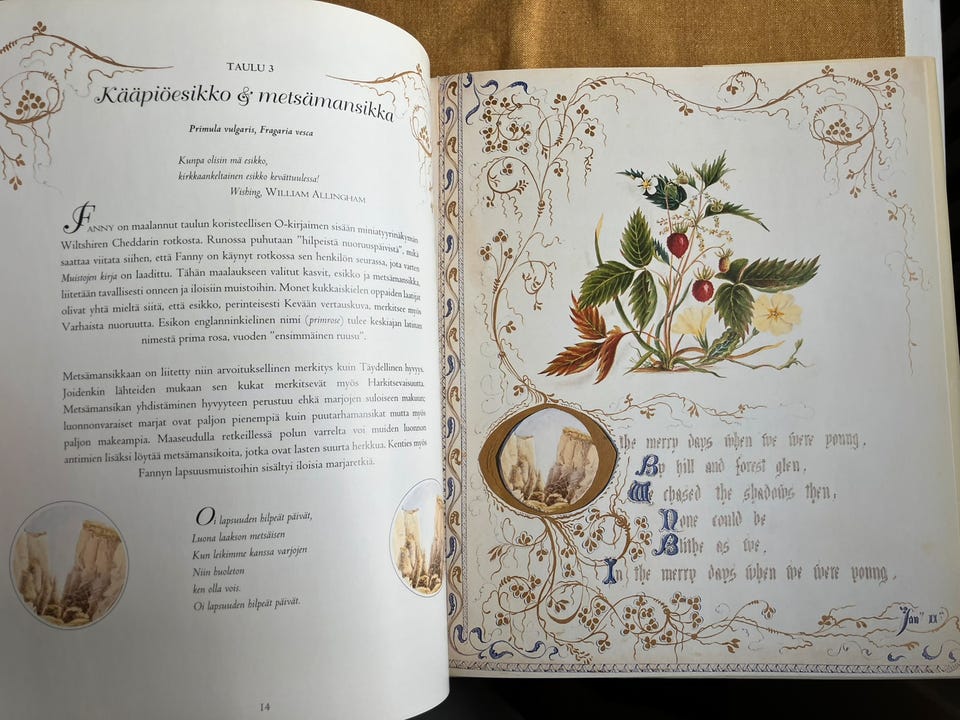 TAULU 3
Kääpiöesikko & metsämansikka
Primula vulgaris, Fragaria vesca
Kunpa olisin mä esikko,
kirkkaankeltainen esikko kevättuulessa!
Wishing, WILLIAM ALLINGHAM
FANNY on maalannut taulun koristeellisen O-kirjainen sisään miniatyyrinäkymän
Wiltshiren Cheddarin rotkosta. Runossa puhutaan "hilpeistä nuoruspäivistä", mikä
saattaa viitata siihen, että Fanny on käynyt rotkossa sen henkilön seurassa, jota varten
Muistojen kirja on laadittu. Tähän maalaukseen valitut kasvit, esikko ja metsämansikka,
liitetään tavallisesti onneen ja iloisiin muistoihin. Monet kukkaiskielen oppaiden laatijat
olivat yhtä mieltä siitä, että esikko, perinteisesti Kevään vertauskuva, merkitsee myös
Varhaista nuoruutta. Esikon englanninkielinen nimi (primrose) tulee keskiajan latinan
nimestä prima rosa, vuoden "ensimmäinen ruusu".
Metsämansikkaan on liitetty niin arvoituksellinen merkitys kuin Täydellinen hyvyys.
Joidenkin lähteiden mukaan sen kukat merkitsevät myös Harkitsevaisuutta.
Metsämansikan yhdistäminen hyvyyteen perustuu ehkä marjojen suloiseen makuun;
luonnonvaraiset marjat ovat paljon pienempiä kuin puutarhamansikat mutta myös
paljon makeampia. Maaseudulla retkeillessä polun varrelta voi muiden luonnon
antimien lisäksi löytää metsämansikoita, jotka ovat lasten suurta herkkua. Kenties myös
Fannyn lapsuusmuistoihin sisältyi iloisia marjaretkiä.
Oi lapsuuden hilpeät päivät,
Luona laakson metsäisen
Kun leikimme kanssa varjojen
Niin huoleton
ken olla vois.
Oi lapsuuden hilpeät päivät.
14
O the merry days when we were young,
By hill and forest glen,
We chased the shadows then,
None could be
Blithe as we,
In the merry days when we were young.
Jan" II"